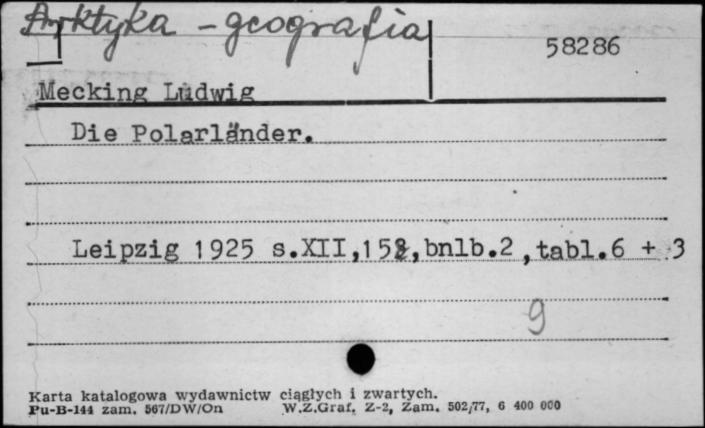 Arktyka - geografia
58286
Mecking Ludwig
Die Polarländer.
Leipzig 1925 s.XII,158,bnlb.2,tabl.6 + 3
9
Karta katalogowa wydawnictw ciągłych i zwartych.
Pu-B-144 zam. 567/DW/On W.Z.Graf. Z-2, Zam. 502/77, 6 400 000